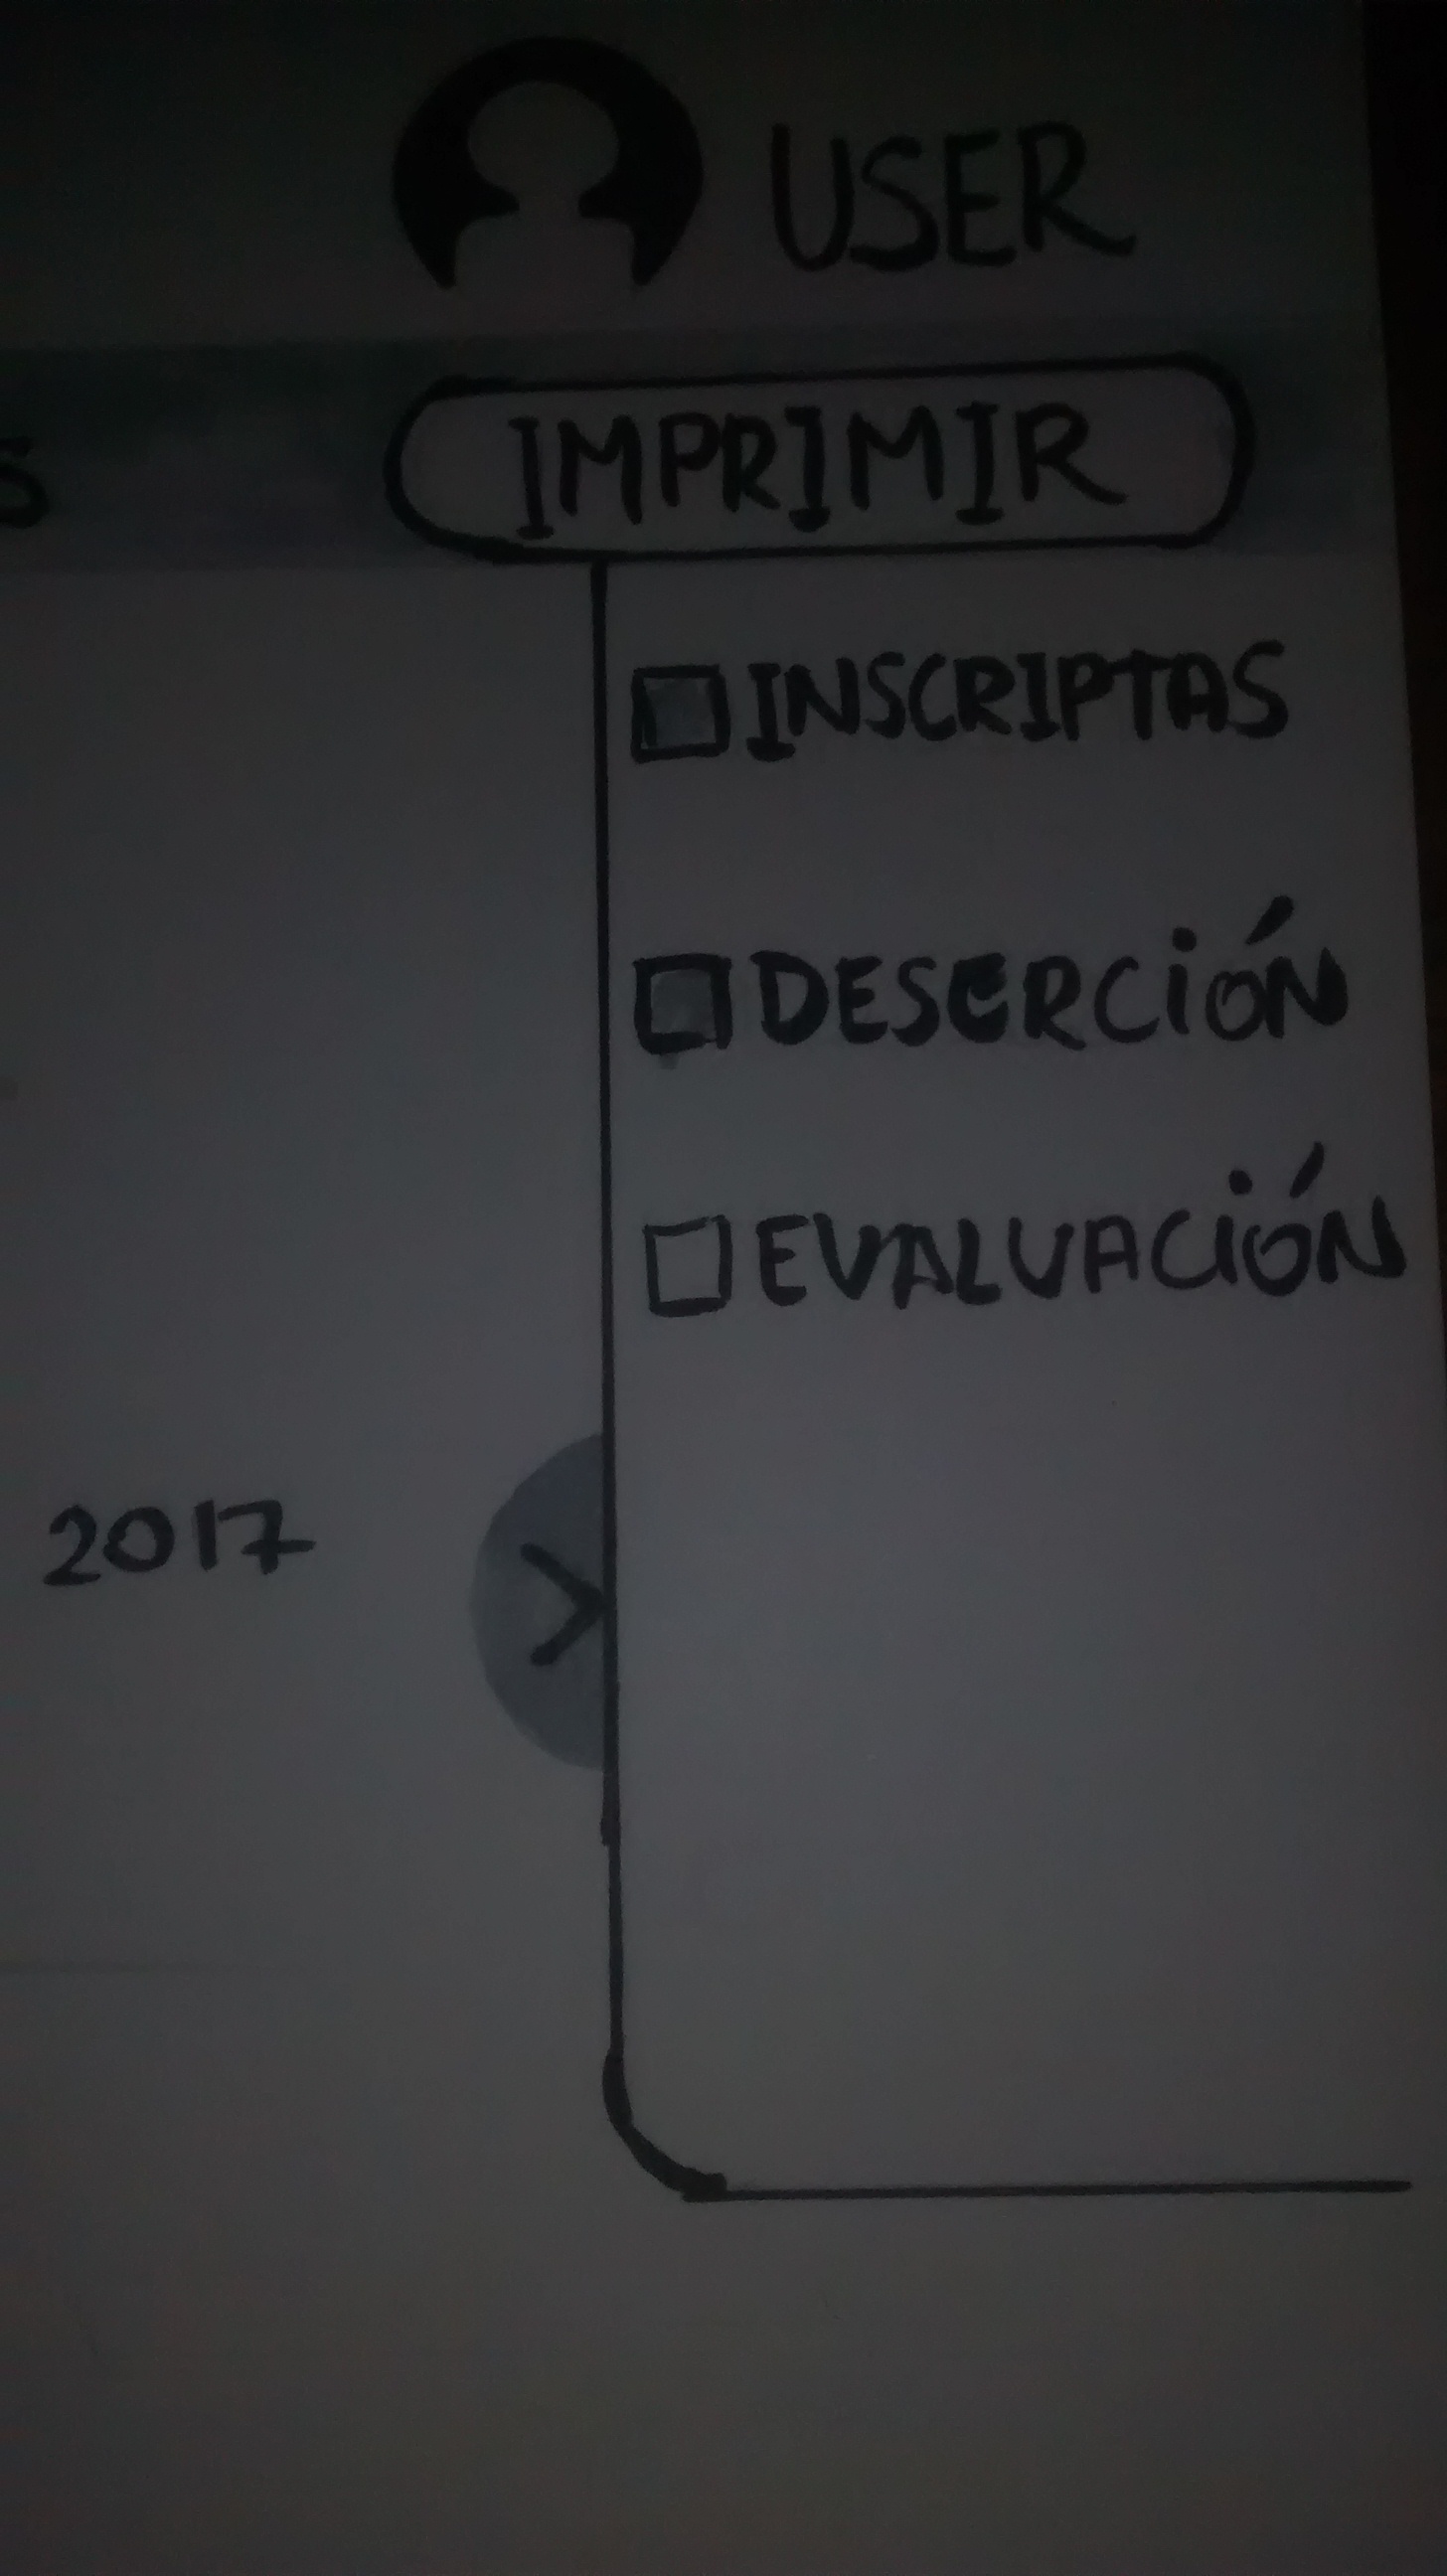 USER
S
IMPRIMIR
INSCRIPTAS
DESERCIÓN
EVALUACIÓN
2017
>